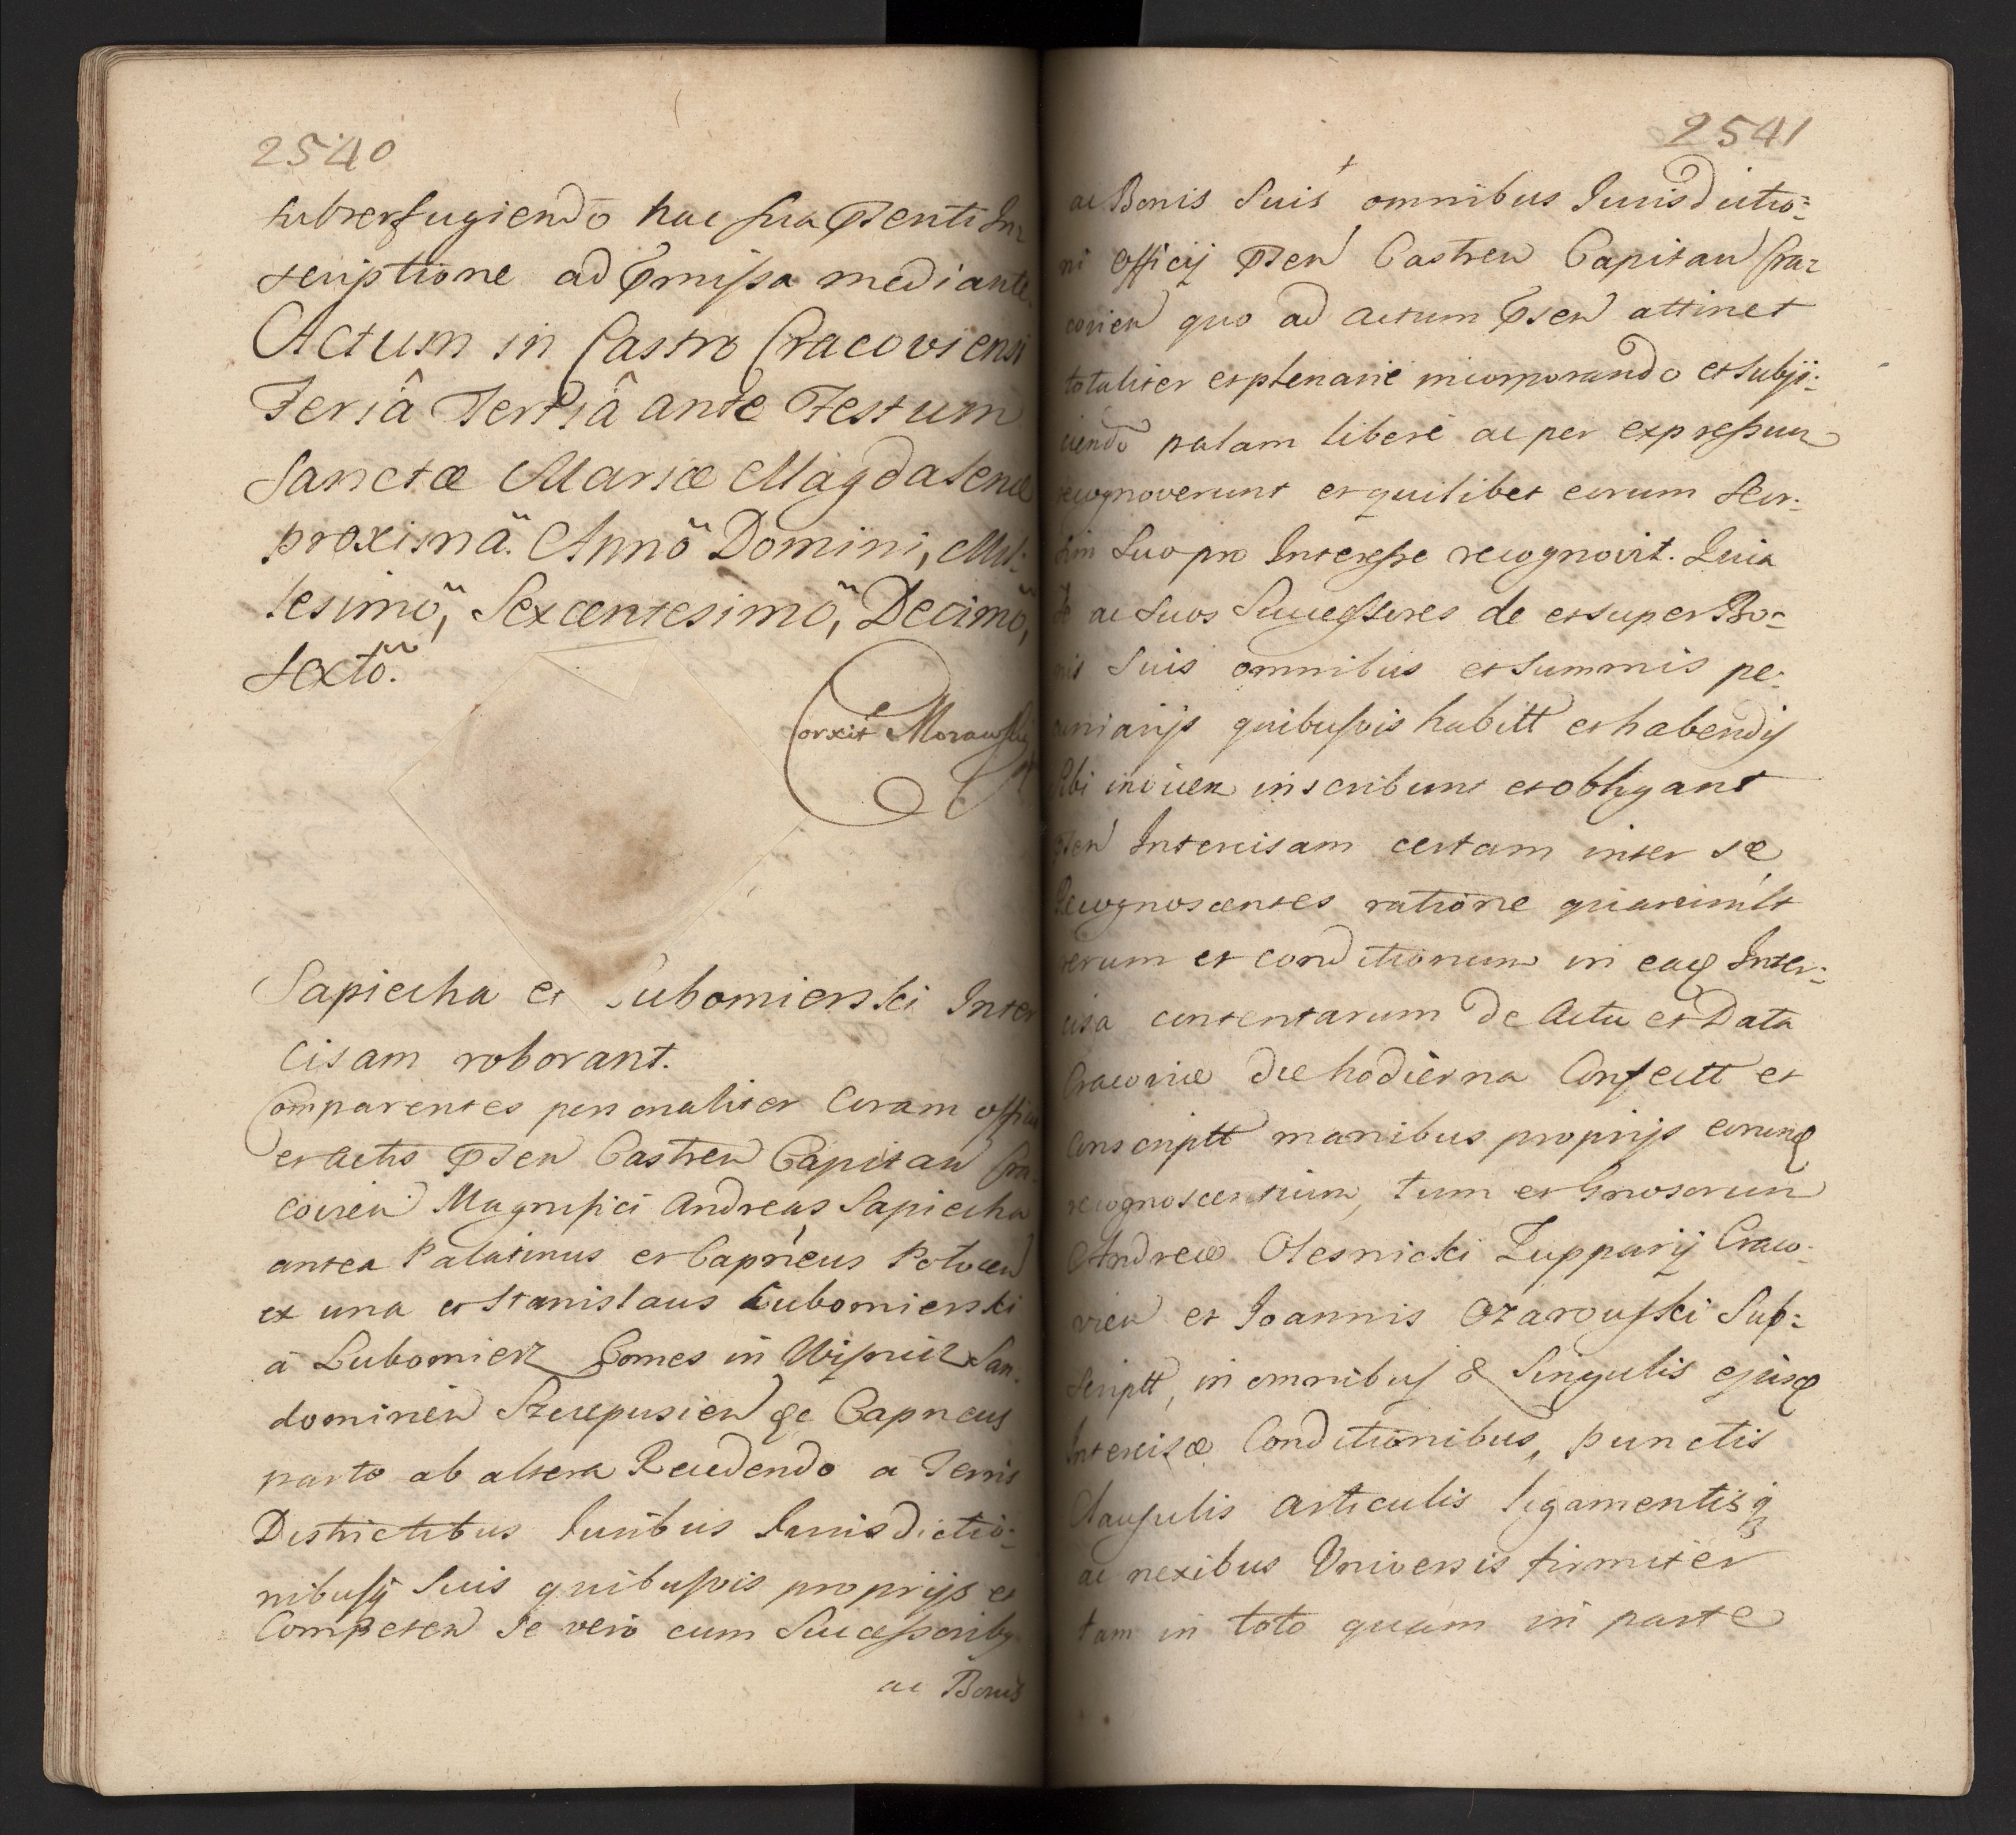 2540
subterfugiendo hac sua Psenti In=
scriptione ad Pmissa mediante.
Actum in Castro Cracoviensi
Feriâ Tertiâ ante Festum
Sanctæ Mariæ Magdalenæ
proximã. Annõ Domini, Mil:
lesimõ, Sexcentesimõ, Decimõ,
Sextõ.
Corxit Morawski
Sapiecha et Lubomierski Inter
cisam roborant.
Comparentes personaliter Coram officio
et Actis Psen Castren Capitan Cra=
covien Magnifici Andreas Sapiecha
antea Palatinus et Capneus Polocen
ex una et Stanislaus Lubomierski
a Lubomierz Comes in Wisnicz San.
domirien Szcepusien &c Capneus
parto ab altera Recedendo a Terris
Districtibus Juribus Jurisdictio:
nibusq suis quibusvis proprijs et
Competen se vero cum Successoriby
ac Bonis
2541
ac Bonis Suis omnibus Jurisdictio=
ni Officij Psen Castren Capitan Cra=
covien quo ad actum Psen attinet
totaliter et plenarie incorporando et subji:
ciendo palam libere ac per expressum
recognoverunt et quilibet eorum Seor:
sim Suo pro Interesse recognovit. Quia
se ac Suos Successores de et super Bo=
nis Suis omnibus et Summis pe:
cuniarijs quibusvis habitt et habendis
Sibi invicem inscribunt et obligant
Psen Intercisam certam inter se
Recognoscentes ratione
rerum et conditionum in eaq Inter:
cisa contentarum de Actu et Data
Cracoviæ die hodierna Confectt et
Conscriptt manibus proprijs eorunq
recognoscentium, tum et Gnosorum
Andreæ Olesnicki Zupparij Craco.
vien et Joannis Ozarowski Sub:
scriptt, in omnibus & Singulis ejusq
Intercisæ Conditionibus, punctis
Clausulis articulis ligamentisq
ac nexibus Universis firmiter
tam in toto quam in parte